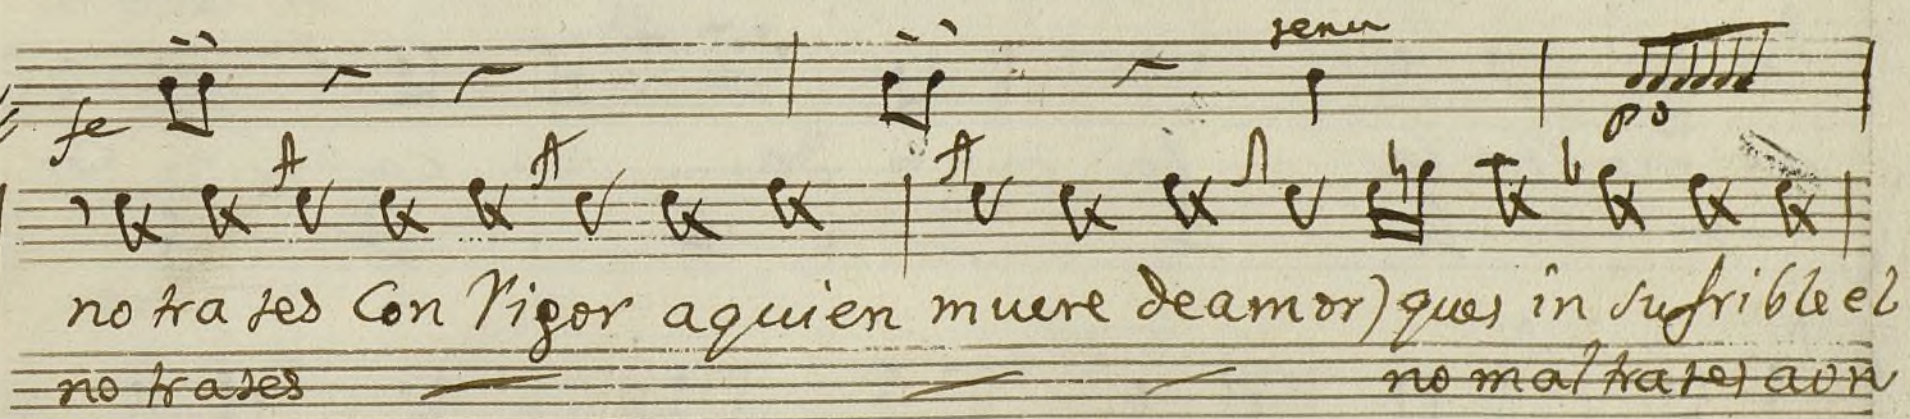 fe
po
no tra tes Con Rigor aquien muere deamor) ques in sufrible el
no trates no mal trates aun